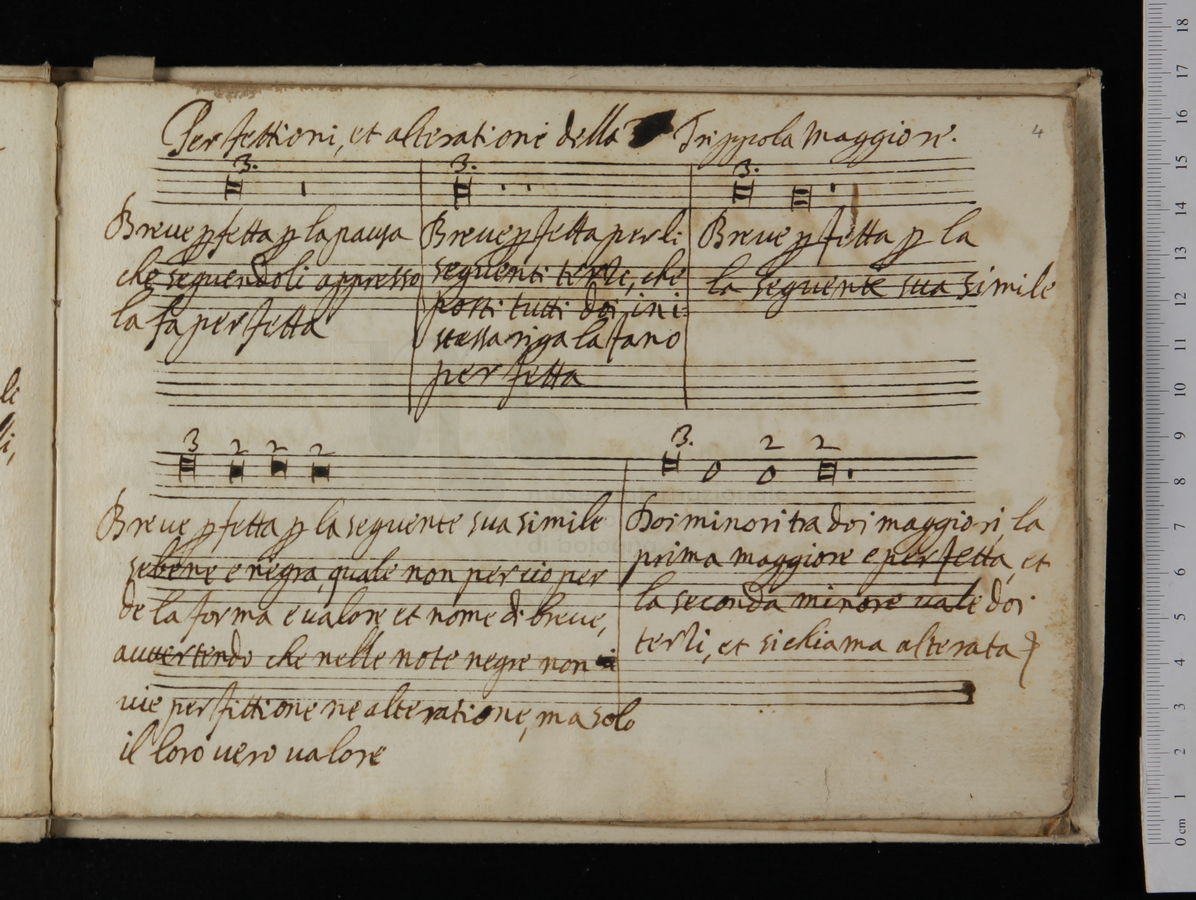 Perfettioni, et alteratione della Trippola Maggiore.
4
3.
3.
3.
Breve pfetta p la pausa
che seguendoli appresso
la fa perfetta
Breve pfetta per li
seguenti terze, che
posti tutti doi, in i
stessa riga la fano
perfetta
Breve pfetta p la
la seguente sua simile
3 2 2 2
Breve pfetta p la seguente sua simile
sebene e negra, quale non percio per
de la forma e valore et nome di breve,
avvertendo che nelle note negre non
vie perfittione ne alteratione, ma solo
il loro vero valore
3. 2 2
Doi minori tra doi maggiori, la
prima maggiore e perfetta, et
la seconda minore vale doi
terzi, et si chiama alterata
0 cm 1 2 3 4 5 6 7 8 9 10 11 12 13 14 15 16 17 18